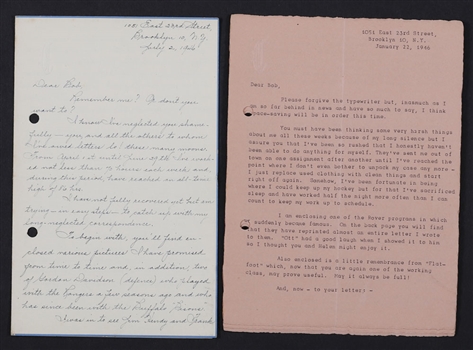 1051 East 33rd Street,
Brooklyn 10, N.Y.
July 2, 1946
Dear Bob,
Remember me? Or don't you
want to?
I know I've neglected you shame-
fully - you and all the others to whom
I've owed letters to these many moons.
From April 1st until June 29th I've work-
ed not less than hours each week and
during this period, have reached an all-time
high of 80 hrs.
I have not fully recovered yet but am
trying in easy steps to catch up with my
long-neglected correspondence.
To begin with, you'll find en-
closed various pictures I have promised
from time to time and, in addition, two
of Gordon Davidson (defense) who played
with the Rangers a few seasons ago and who
has since been with the Buffalo "Bisons".
I was in to see Jim Hendy and Frank
1051 East 33rd Street,
Brooklyn 10, N.Y.
January 22, 1946
Dear Bob,
Please forgive the typewriter but, inasmuch as I
am so far behind in news and have so much to say, I think
space-saving will be in order this time.
You must have been thinking some very harsh things
about me all these weeks because of my long silence but I
assure you that I've been so rushed that I honestly haven't
been able to do anything for myself. They've sent me out of
town on one assignment after another until I've reached the
point where I don't even bother to unpack my ones any more -
I just replace used clothing with clean things and start
right off again. Somehow, I've been fortunate in being
where I could keep up my hockey but for that I've sacrificed
sleep and have worked half the night more often than I can
count to keep my work up to schedule.
I am enclosing one of the Rover programs in which
I suddenly became famous. On the back page you will find
that they have reprinted almost an entire letter I wrote
to them. "Oti" had a good laugh when I showed it to him
so I thought you and Helen might enjoy it.
Also enclosed is a little remembrance from "Flat-
foot" which, now that you are again one of the working
class, may prove useful. May it always be full!
And, now - to your letter: -